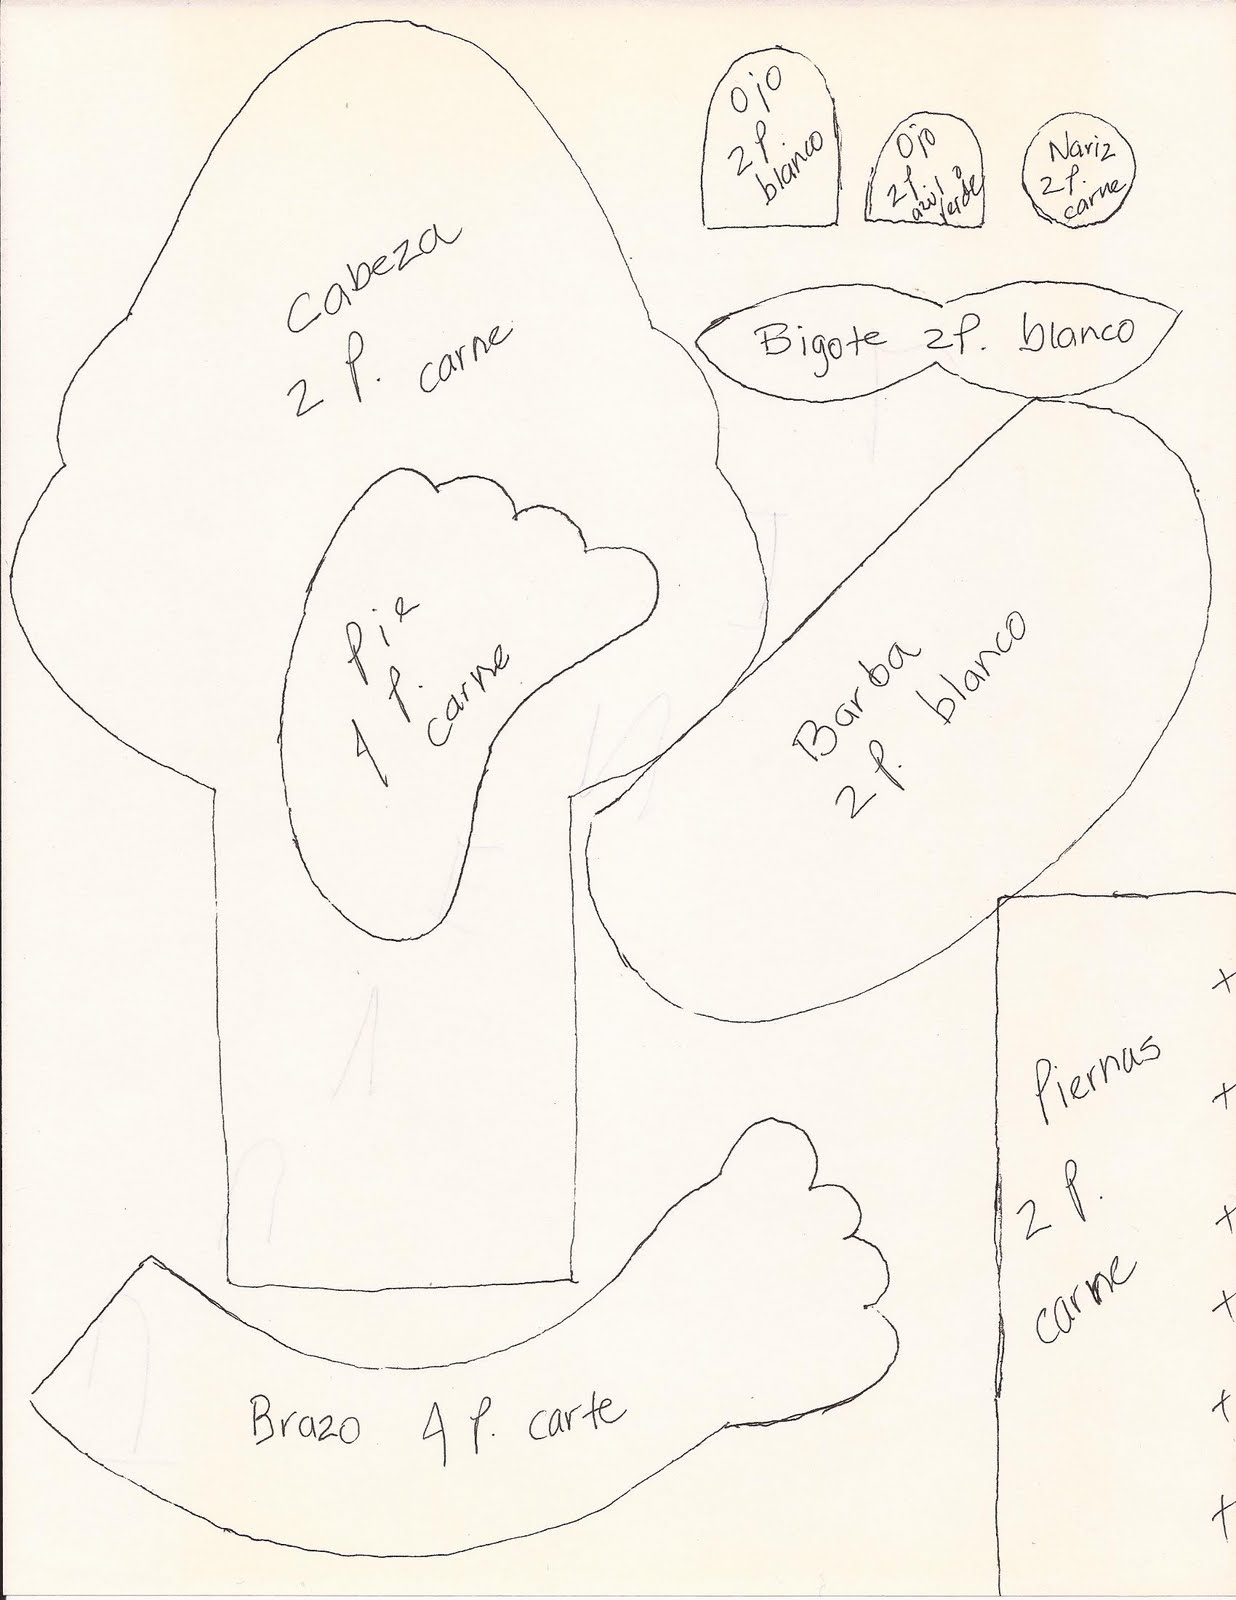 Ojo
2 P.
blanco
Ojo
2 P.
azul o
verde
Nariz
2 P.
carne
Cabeza
2 P. carne
Bigote 2P. blanco
Pie
4 P.
carne
Barba
2 P. blanco
Piernas
2 P.
carne
Brazo 4 P. carte